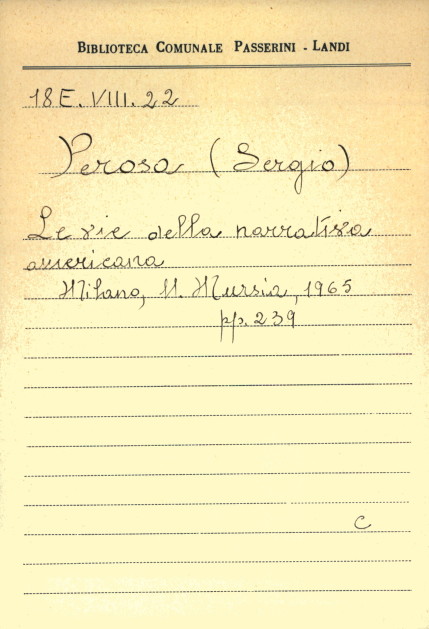 BIBLIOTECA COMUNALE PASSERINI - LANDI
18E.VIII.22
Perosa (Sergio)
Le vie della narrativa
americana
Milano, U. Mursia, 1965
pp. 239
C